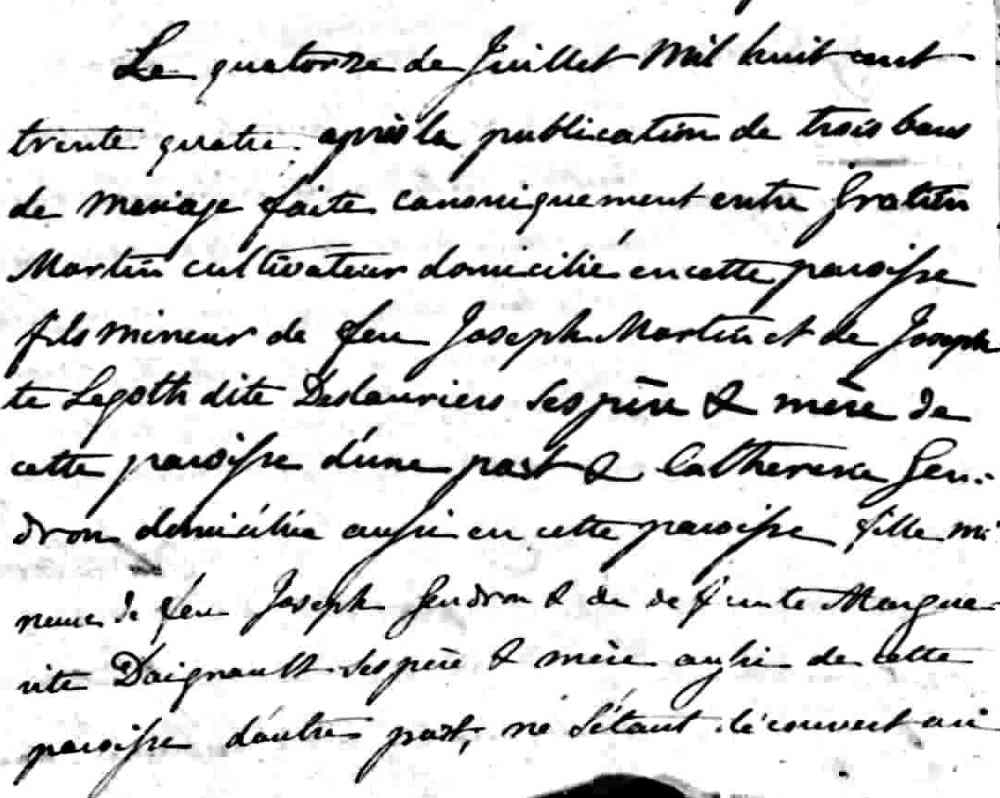 Le quatorze de Juillet Mil huit cent
trente quatre après la publication de trois bans
de Mariage faite canoniquement entre Gratien
Martin cultivateur domicilié en cette paroisse
fils mineur de feu Joseph Martin et de Joseph
te Legoth dite Deslauriers ses père & mère de
cette paroisse d'une part & Catherine Gen-
dron domiciliée aussi en cette paroisse fille mi
neure de feu Joseph Gendron & de defunte Margue-
rite Daignault ses père & mère aussi de cette
paroisse d'autre part, ne s'étant découvert au